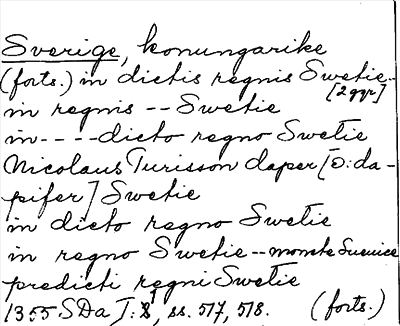 Sverige, konungarike
(forts.) in dictis regnis Swetie--
[2 ggr]
in regnis -- Swetie
in - - - - dicto regno Swetie
Nicolaus Turisson daper [ɔ: da-
pifer] Swetie
in dicto regno Swetie
in regno Swetie -- monete Suecice
predicti regni Swetie
1355 SDa I:8, ss. 517, 518. (forts.)